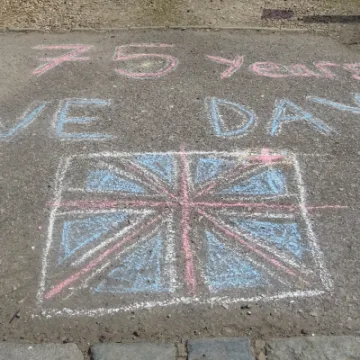 75 Years
VE DAY